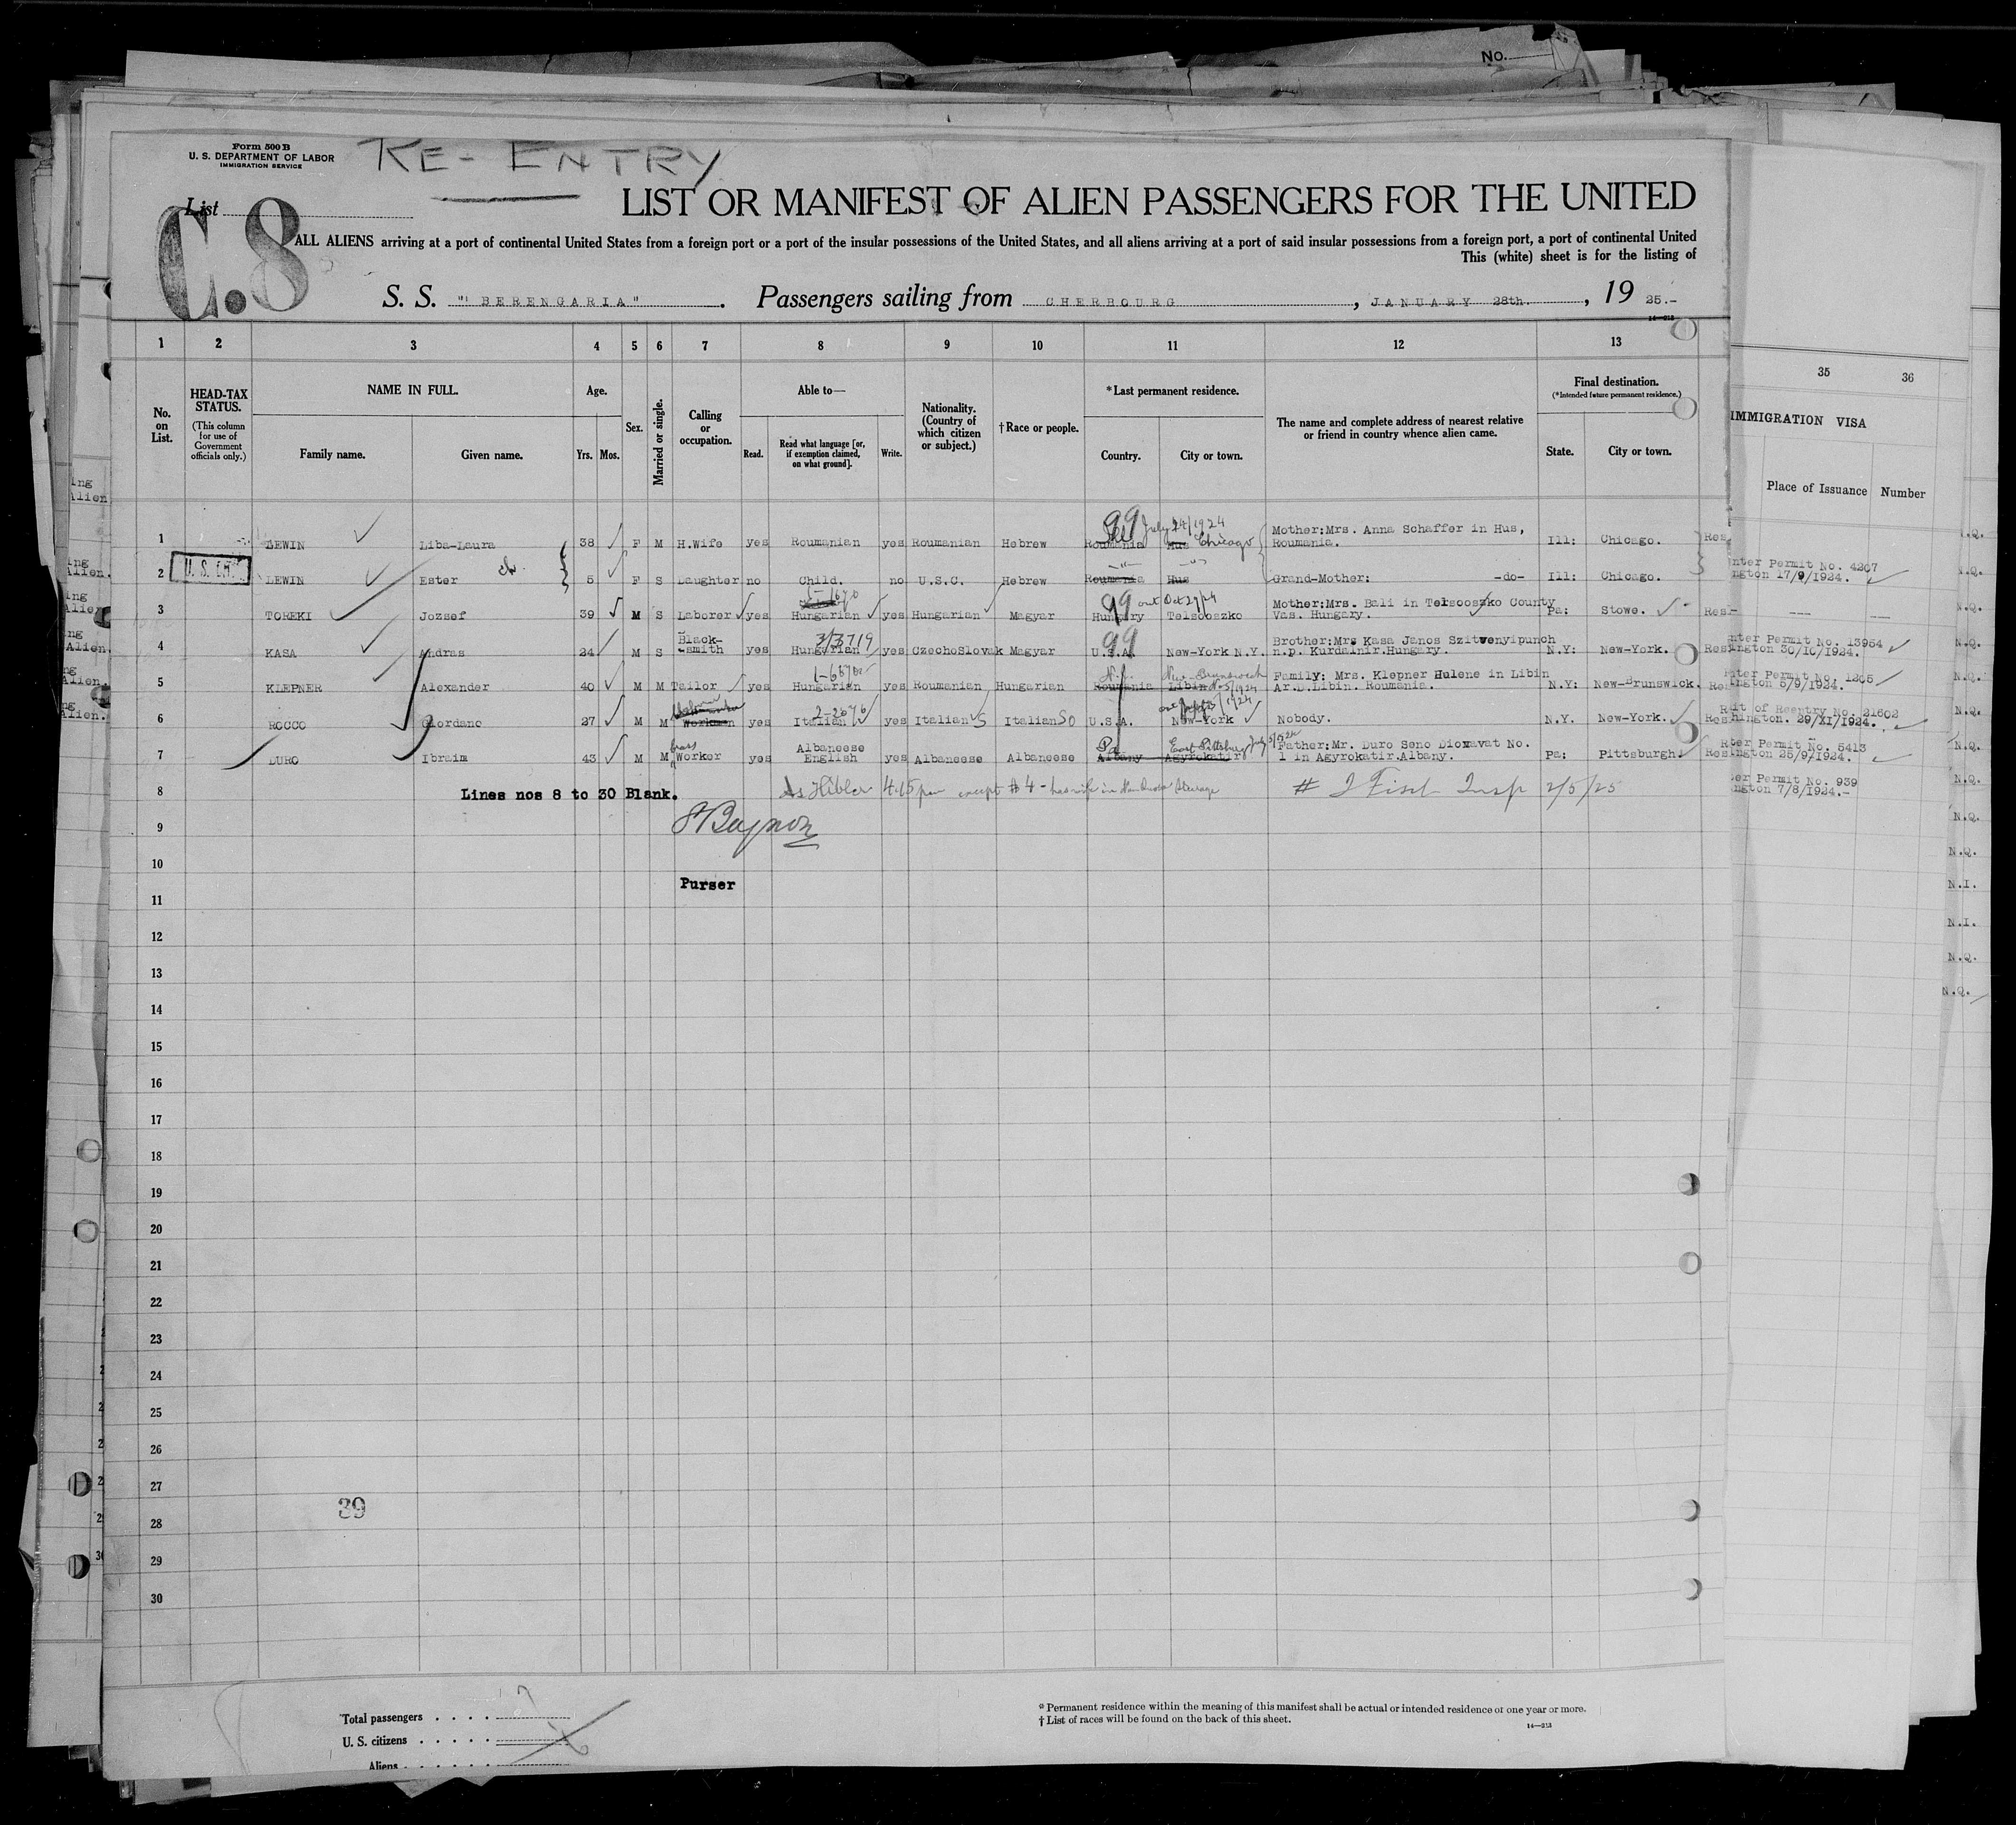 No.
Form 500 B
U. S. DEPARTMENT OF LABOR
IMMIGRATION SERVICE
RE-ENTRY
List
C.8
LIST OR MANIFEST OF ALIEN PASSENGERS FOR THE UNITED
ALL ALIENS arriving at a port of continental United States from a foreign port or a port of the insular possessions of the United States, and all aliens arriving at a port of said insular possessions from a foreign port, a port of continental United
This (white) sheet is for the listing of
S. S. "BERENGARIA". Passengers sailing from CHERBOURG, JANUARY 28th., 1925.-
14—213
1 2 3 4 5 6 7 8 9 10 11 12 13
No. on List.
HEAD-TAX STATUS.
(This column for use of Government officials only.)
NAME IN FULL.
Family name. Given name.
Age.
Yrs. Mos.
Sex.
Married or single.
Calling or occupation.
Able to—
Read. Read what language [or, if exemption claimed, on what ground]. Write.
Nationality. (Country of which citizen or subject.)
†Race or people.
*Last permanent residence.
Country. City or town.
The name and complete address of nearest relative or friend in country whence alien came.
Final destination.
(*Intended future permanent residence.)
State. City or town.
35 36
IMMIGRATION VISA
Place of Issuance Number
99 July 24/1924
1 LEWIN Liba-Laura 38 F M H.Wife yes Roumanian yes Roumanian Hebrew Roumania Hus Chicago Mother:Mrs. Anna Schaffer in Hus, Roumania. Ill: Chicago. Res
U.S. CIT.
2 LEWIN Ester 5 F S Daughter no Child. no U.S.C. Hebrew Roumania Hus Grand-Mother: -do- Ill: Chicago.
nter Permit No. 4207
ngton 17/9/1924.
99 out Oct 27/24
3 TOREKI Jozsef 39 M S Laborer yes Hungarian yes Hungarian Magyar Hungary Telsooszko Mother:Mrs. Bali in Telsooszko County Vas. Hungary. Pa: Stowe. Res.-
99
3/3719
4 KASA Andras 24 M S Black-smith yes Hungarian yes CzechoSlovak Magyar U.S.A. New-York N.Y. Brother:Mrs Kasa Janos Szitwenyipunch n.p. Kurdalnir.Hungary. N.Y: New-York. Res
nter Permit No. 13954
ington 30/10/1924.
N.J. New Brunswick
5 KLEPNER Alexander 40 M M Tailor yes Hungarian yes Roumanian Hungarian Roumania Libin Family: Mrs. Klepner Hulene in Libin Ar.D.Libin. Roumania. N.Y: New-Brunswick. Res
nter Permit No. 1205
ington 5/9/1924.
2-2676
6 ROCCO Giordano 27 M M Workman yes Italian yes Italian Italian SO U.S.A. New-York Nobody. N.Y. New-York. Res
it of Reentry No. 21602
hington. 29/XI/1924.
Pa East Pittsburg
7 DURO Ibraim 43 M M brass Worker yes Albaneese English yes Albaneese Albaneese Albany Agyrokatir Father:Mr. Duro Seno Diomavat No. 1 in Agyrokatir.Albany. Pa: Pittsburgh. Res
ter Permit No. 5413
ngton 25/9/1924.
8 Lines nos 8 to 30 Blank. 4.15 pm except #4 - has wife in Steerage # Insp 2/5/25
er Permit No. 939
ngton 7/8/1924.-
9
10
Purser
11
12
13
14
15
16
17
18
19
20
21
22
23
24
25
26
27
39
28
29
30
N.Q.
N.Q.
N.Q.
N.Q.
N.Q.
N.Q.
N.Q.
N.Q.
N.Q.
N.Q.
N.I.
N.I.
N.Q.
N.Q.
Total passengers 7
U. S. citizens
Aliens
* Permanent residence within the meaning of this manifest shall be actual or intended residence of one year or more.
† List of races will be found on the back of this sheet.
14—213